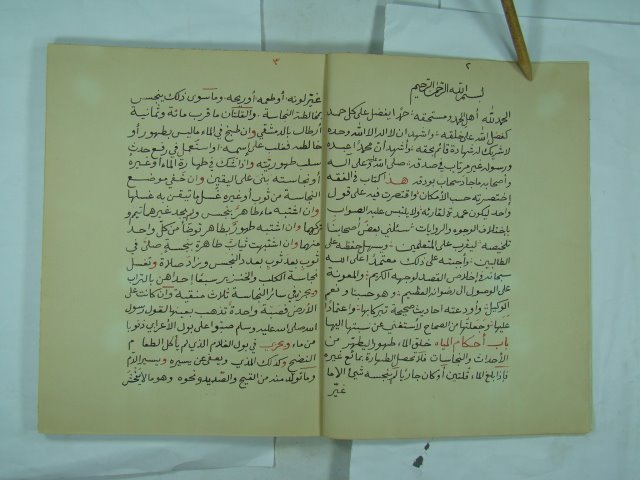 ٢
بسم الله الرحمن الرحيم
الحمد لله أهل الحمد ومستحقه حمدا يفضل على كل حمد
كفضل الله على خلقه وأشهد أن لا اله الا الله وحده
لا شريك له شهادة قائم بحقه وأشهد أن محمدا عبده
ورسوله غير مرتاب في صدقه صلى الله وعلى اله
وأصحابه ما جاد سحاب بودقه هذا كتاب في الفقه
اختصرته حسب الامكان واقتصرت فيه على قول
واحد ليكون عمدة لقارئه ولا يلتبس عليه الصواب
باختلاف الوجوه والروايات سئلني بعض أصحابنا
تلخيصه ليقرب على المتعلمين ويسهل حفظه على
الطالبين وأجبته على ذلك معتمدا على الله
سبحانه في اخلاص القصد لوجهه الكريم والمعونة
على الوصول الى رضوانه العظيم وهو حسبنا ونعم
الوكيل وأودعته أحاديث صحيحة تبركا بها واعتمادا
عليها وجعلتها من الصحاح لأستغني عن نسبتها اليها
باب أحكام المياه خلق الماء طهورا يطهر من
الأحداث والنجاسات فلا تحصل الطهارة بمائع غيره
فاذا بلغ الماء قلتين أو كان جاريا لم ينجسه شيء الا ما
غيّر
٣
غيّر لونه أو طعمه أو ريحه وما سوى ذلك ينجس
بمخالطة النجاسة والقلتان ما قرب مائة وثمانية
أرطال بالدمشقي وان طبخ في الماء ما ليس بطهور أو
خالطه فغلب على اسمه أو استعمل في رفع حدث
سلب طهوريته واذا شك في طهارة الماء أو غيره
أو نجاسته بنى على اليقين وان خفي موضع
النجاسة من ثوب أو غيره غسل ما تيقن به غسلها
وان اشتبه ماء طاهر بنجس ولم يجد غيرهما تيمم
وتركهما وان اشتبه طهور بطاهر توضأ من كل واحد
منهما وان اشتبهت ثياب طاهرة بنجسة صلى في
ثوب بعد ثوب بعدد النجس وزاد صلاة وتغسل
نجاسة الكلب والخنزير سبعا احداهن بالتراب
ويجزي في سائر النجاسة ثلاث منقية وان كانت على
الأرض فصبة واحدة تذهب بعينها لقول رسول
الله صلى الله عليه وسلم صبوا على بول الأعرابي ذنوبا
من ماء ويجزي في بول الغلام الذي لم يأكل الطعام
النضح وكذلك المذي ويعفى عن يسيره ويسير الدم
وما تولد منه من القيح والصديد ونحوه وهو ما لا يفحش